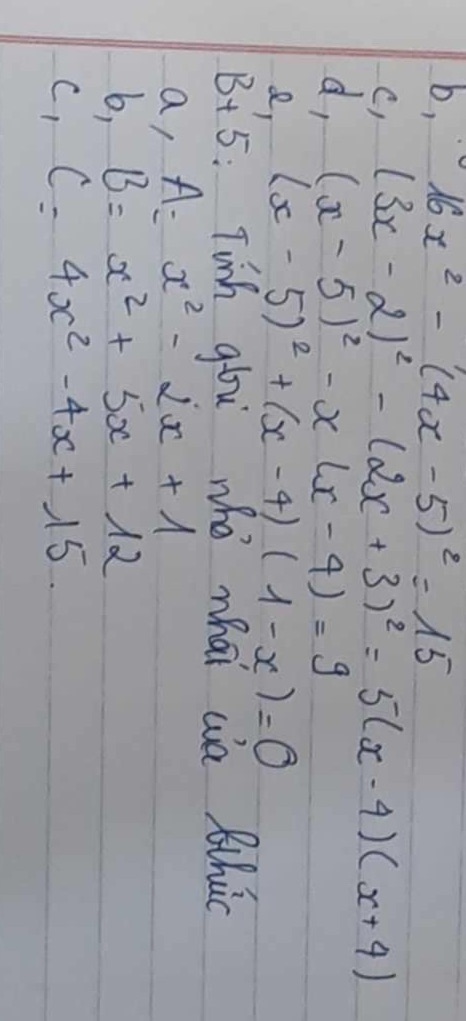 b, 16x² - (4x - 5)² = 15
c, (3x - 2)² - (2x + 3)² = 5(x - 4)(x + 4)
d, (x - 5)² - x(x - 4) = 9
e, (x - 5)² + (x - 4)(1 - x) = 0
B+5: Tính gtri nhỏ nhất của bthức
a, A = x² - 2x + 1
b, B = x² + 5x + 12
c, C = 4x² - 4x + 15.